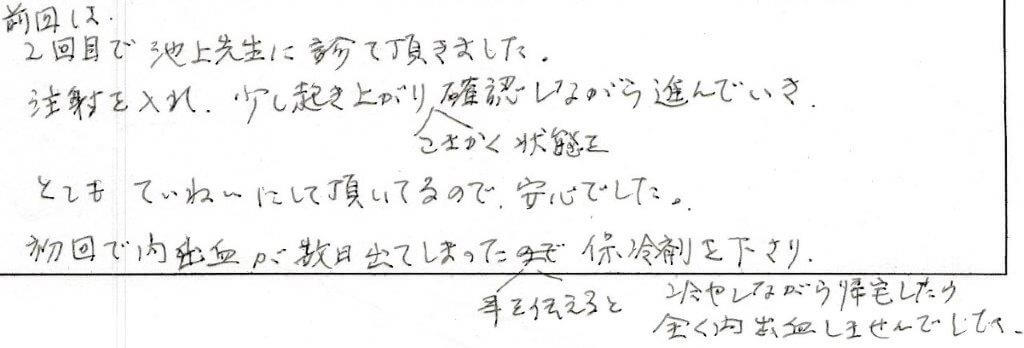 前回は
2回目で池上先生に診て頂きました。
注射を入れ、少し起き上がり確認しながら進んでいき、
こまかく状態を
とても ていねいにして頂いてるので、安心でした。
初回で内出血が数日出てしまったので 保冷剤を下さり、
事を伝えると
冷やしながら帰宅したら
全く内出血しませんでした。